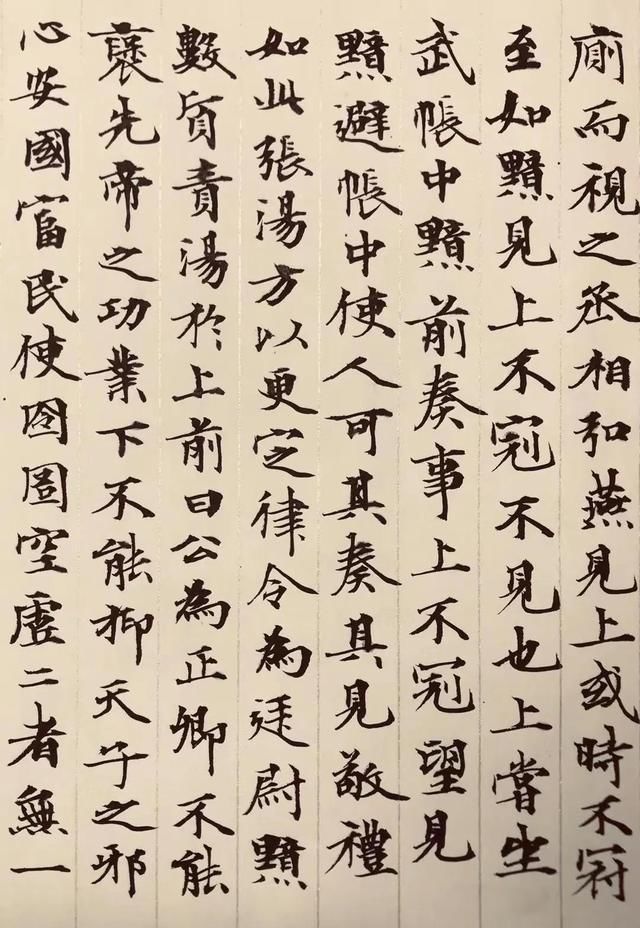 廁而視之丞相弘燕見上或時不冠
至如黯見上不冠不見也上嘗坐
武帳中黯前奏事上不冠望見
黯避帳中使人可其奏其見敬禮
如此張湯方以更定律令為廷尉黯
數質責湯於上前曰公為正卿不能
褒先帝之功業下不能抑天子之邪
心安國富民使囹圄空虛二者無一